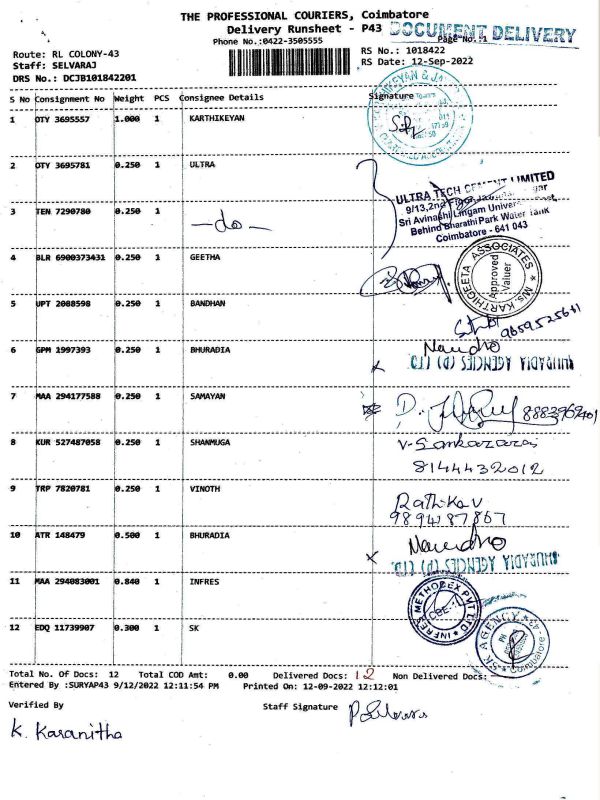 THE PROFESSIONAL COURIERS, Coimbatore
Delivery Runsheet - P43
DOCUMENT DELIVERY
Phone No.:0422-3505555
Page No.:1
Route: RL COLONY-43
RS No.: 1018422
Staff: SELVARAJ
RS Date: 12-Sep-2022
DRS No.: DCJB101842201
S No Consignment No Weight PCS Consignee Details Signature
1 OTY 3695557 1.000 1 KARTHIKEYAN
2 OTY 3695781 0.250 1 ULTRA
ULTRA TECH CEMENT LIMITED
9/13, 2nd Floor,
Sri Avinashi Lingam
Behind Bharathi Park Water Tank
Coimbatore - 641 043
3 TEN 7290780 0.250 1 —do—
4 BLR 6900373431 0.250 1 GEETHA
M/s. KARTHIGEETA ASSOCIATES
Approved
Valuer
5 UPT 2088598 0.250 1 BANDHAN
6 GPM 1997393 0.250 1 BHURADIA
BHURADIA AGENCIES (P) LTD
7 MAA 294177588 0.250 1 SAMAYAN
8 KUR 527487058 0.250 1 SHANMUGA
8144432012
9 TRP 7820781 0.250 1 VINOTH
Rathika V
9894787867
10 ATR 148479 0.500 1 BHURADIA
BHURADIA AGENCIES (P) LTD.
11 MAA 294083001 0.840 1 INFRES
INFRES METHODEX PVT LTD
CBE-11
12 EDQ 11739907 0.300 1 SK
SK AGENCY
Total No. Of Docs: 12 Total COD Amt: 0.00 Delivered Docs: 12 Non Delivered Docs: —
Entered By :SURYAP43 9/12/2022 12:11:54 PM Printed On: 12-09-2022 12:12:01
Verified By
Staff Signature
K. Karanitha